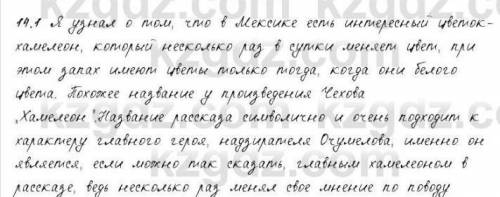 14.1 Я узнал о том, что в Мексике есть интересный цветок-
хамелеон, который несколько раз в сутки меняет цвет, при
этом запах имеют цветы только тогда, когда они белого
цвета. Похожее название у произведения Чехова
„Хамелеон". Название рассказа символично и очень подходит к
характеру главного героя, надзирателя Очумелова, именно он
является, если можно так сказать, главным хамелеоном в
рассказе, ведь несколько раз менял свое мнение по поводу